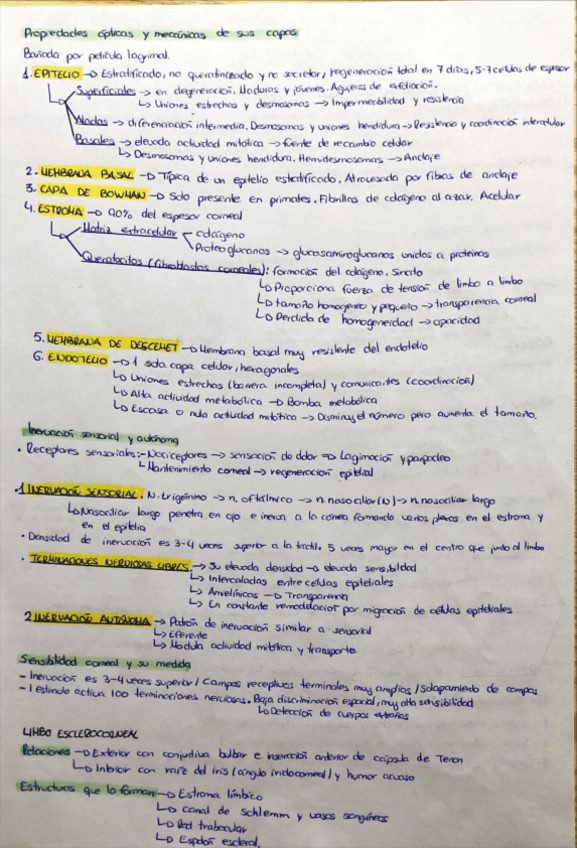 Propiedades ópticas y mecánicas de sus capas
Bañada por película lagrimal.
1. EPITELIO → Estratificado, no queratinizado y no secretor, regeneración total en 7 días, 5-7 células de espesor
Superficiales → en degeneración. Maduras y jóvenes. Agujeros de exfoliación.
↳ Uniones estrechas y desmosomas → Impermeabilidad y resistencia
Aladas → diferenciación intermedia. Desmosomas y uniones hendidura → Resistencia y coordinación intercelular
Basales → elevada actividad mitótica → fuente de recambio celular
↳ Desmosomas y uniones hendidura. Hemidesmosomas → Anclaje
2. MEMBRANA BASAL → Típica de un epitelio estratificado. Atravesada por fibras de anclaje
3. CAPA DE BOWMAN → Solo presente en primates. Fibrillas de colágeno al azar. Acelular
4. ESTROMA → 90% del espesor corneal
Matriz extracelular colágeno
Proteoglucanos → glucosaminoglucanos unidos a proteínas
Queratocitos (fibroblastos corneales): formación del colágeno. Sincitio
↳ Proporciona fuerza de tensión de limbo a limbo
↳ tamaño homogéneo y pequeño → transparencia corneal
↳ Perdida de homogeneidad → opacidad
5. MEMBRANA DE DESCEMET → Membrana basal muy resistente del endotelio
6. ENDOTELIO → 1 sola capa celular, hexagonales
↳ Uniones estrechas (barrera incompleta) y comunicantes (coordinación)
↳ Alta actividad metabólica → Bomba metabólica
↳ Escasa o nula actividad mitótica → Disminuye el número pero aumenta el tamaño.
Inervación sensorial y autónoma
• Receptores sensoriales: - Nociceptores → sensación de dolor ⇒ Lagrimación y parpadeo
↳ Mantenimiento corneal → regeneración epitelial
1 INERVACIÓN SENSORIAL. N. trigémino → n. oftálmico → n. nasociliar (N) → n. nasociliar largo
↳ Nasociliar largo penetra en ojo e inerva a la córnea formando varios plexos en el estroma y
en el epitelio
• Densidad de inervación es 3-4 veces superior a la táctil. 5 veces mayor en el centro que junto al limbo
• TERMINACIONES NERVIOSAS LIBRES → Su elevada densidad → elevada sensibilidad
↳ Intercaladas entre células epiteliales
↳ Amielínicas → Transparencia
↳ En constante remodelación por migración de células epiteliales
2 INERVACIÓN AUTÓNOMA → Patrón de inervación similar a sensorial
↳ Eferente
↳ Modula actividad mitótica y transporte
Sensibilidad corneal y su medida
- Inervación es 3-4 veces superior / Campos receptivos terminales muy amplios / Solapamiento de campos
- 1 estímulo activa 100 terminaciones nerviosas. Baja discriminación espacial, muy alta sensibilidad
↳ Detección de cuerpos extraños
LIMBO ESCLEROCORNEAL
Relaciones → Exterior con conjuntiva bulbar e inserción anterior de cápsula de Tenon
↳ Interior con raíz del iris (ángulo iridocorneal) y humor acuoso
Estructuras que lo forman → Estroma límbico
↳ Canal de Schlemm y vasos sanguíneos
↳ Red trabecular
↳ Espolón escleral.